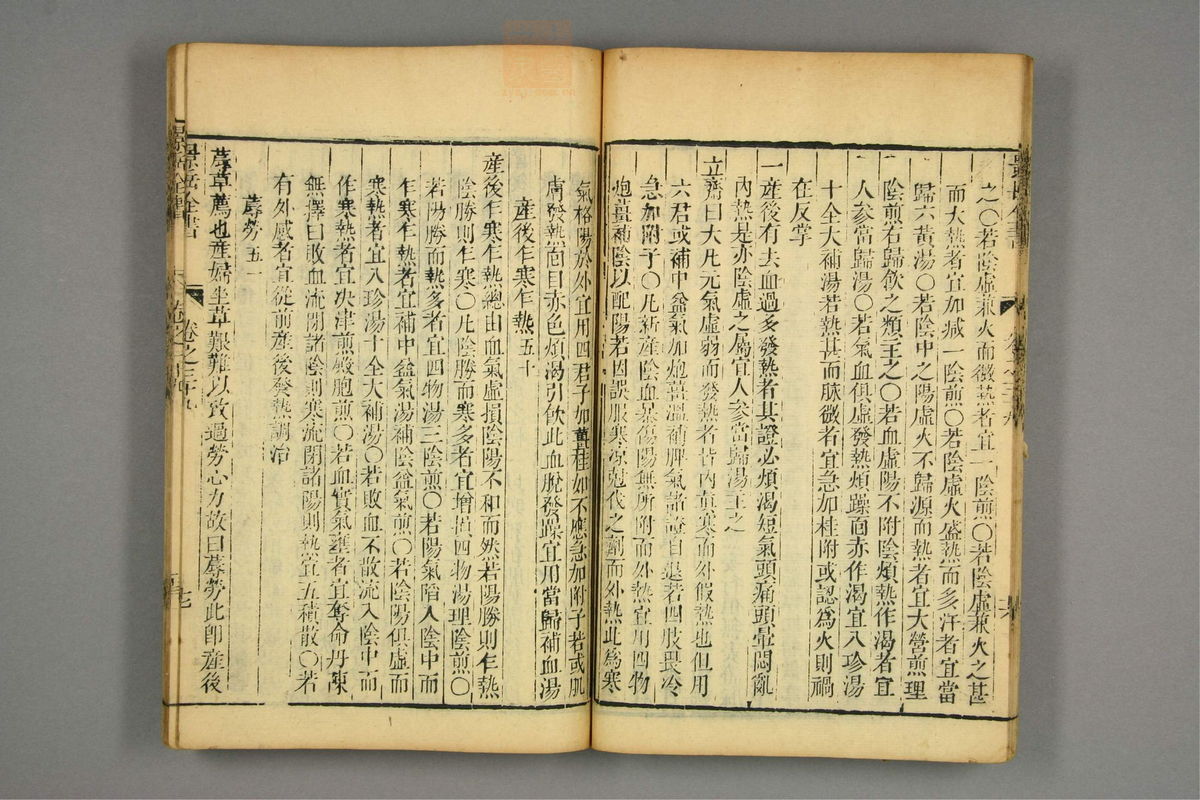 之○若陰虛兼火而微熱者宜一陰煎○若陰虛兼火之甚
而大熱者宜加減一陰煎○若陰虛火盛熱而多汗者宜當
歸六黃湯○若陰中之陽虛火不歸源而熱者宜大營煎理
陰煎右歸飲之類主之○若血虛陽不附陰煩熱作渴者宜
人參當歸湯○若氣血俱虛發熱煩躁面赤作渴宜八珍湯
十全大補湯若熱甚而脉微者宜急加桂附或認爲火則禍
在反掌
一產後有去血過多發熱者其證必煩渴短氣頭痛頭暈悶亂
內熱是亦陰虛之屬宜人參當歸湯主之
立齋曰大凡元氣虛弱而發熱者皆內真寒而外假熱也但用
六君或補中益氣加炮薑溫補脾氣諸證自退若四肢畏冷
急加附子○凡新產陰血暴傷陽無所附而外熱宜用四物
炮薑補陰以配陽若因誤服寒凉尅伐之劑而外熱此爲寒
氣格陽於外宜用四君子加薑桂如不應急加附子若或肌
膚發熱面目赤色煩渴引飲此血脫發躁宜用當歸補血湯
產後乍寒乍熱五十
產後乍寒乍熱總由血氣虛損陰陽不和而然若陽勝則乍熱
陰勝則乍寒○凡陰勝而寒多者宜增損四物湯理陰煎○
若陽勝而熱多者宜四物湯三陰煎○若陽氣陷入陰中而
乍寒乍熱者宜補中益氣湯補陰益氣煎○若陰陽俱虛而
寒熱者宜八珍湯十全大補湯○若敗血不散流入陰中而
作寒熱者宜决津煎殿胞煎○若血實氣壅者宜奪命丹陳
無擇曰敗血流閉諸陰則寒流閉諸陽則熱宜五積散○若
有外感者宜從前產後發熱調治
蓐勞五一
蓐草薦也產婦坐草艱難以致過勞心力故曰蓐勞此卽產後
景岳全書
卷之三十九
七